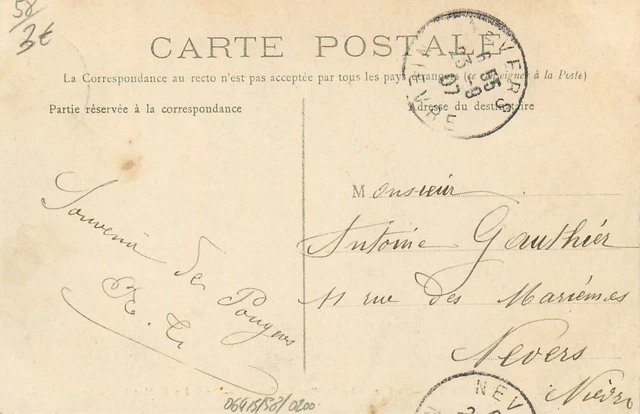 58/
3€
CARTE POSTALE
La Correspondance au recto n'est pas acceptée par tous les pays étrangers (se renseigner à la Poste)
Partie réservée à la correspondance
Adresse du destinataire
NEVERS
NIEVRE
6 55
23 -9
07
Souvenir de Pougues
Monsieur
Antoine Gauthier
11 rue des
Nevers
Nièvre
NEV